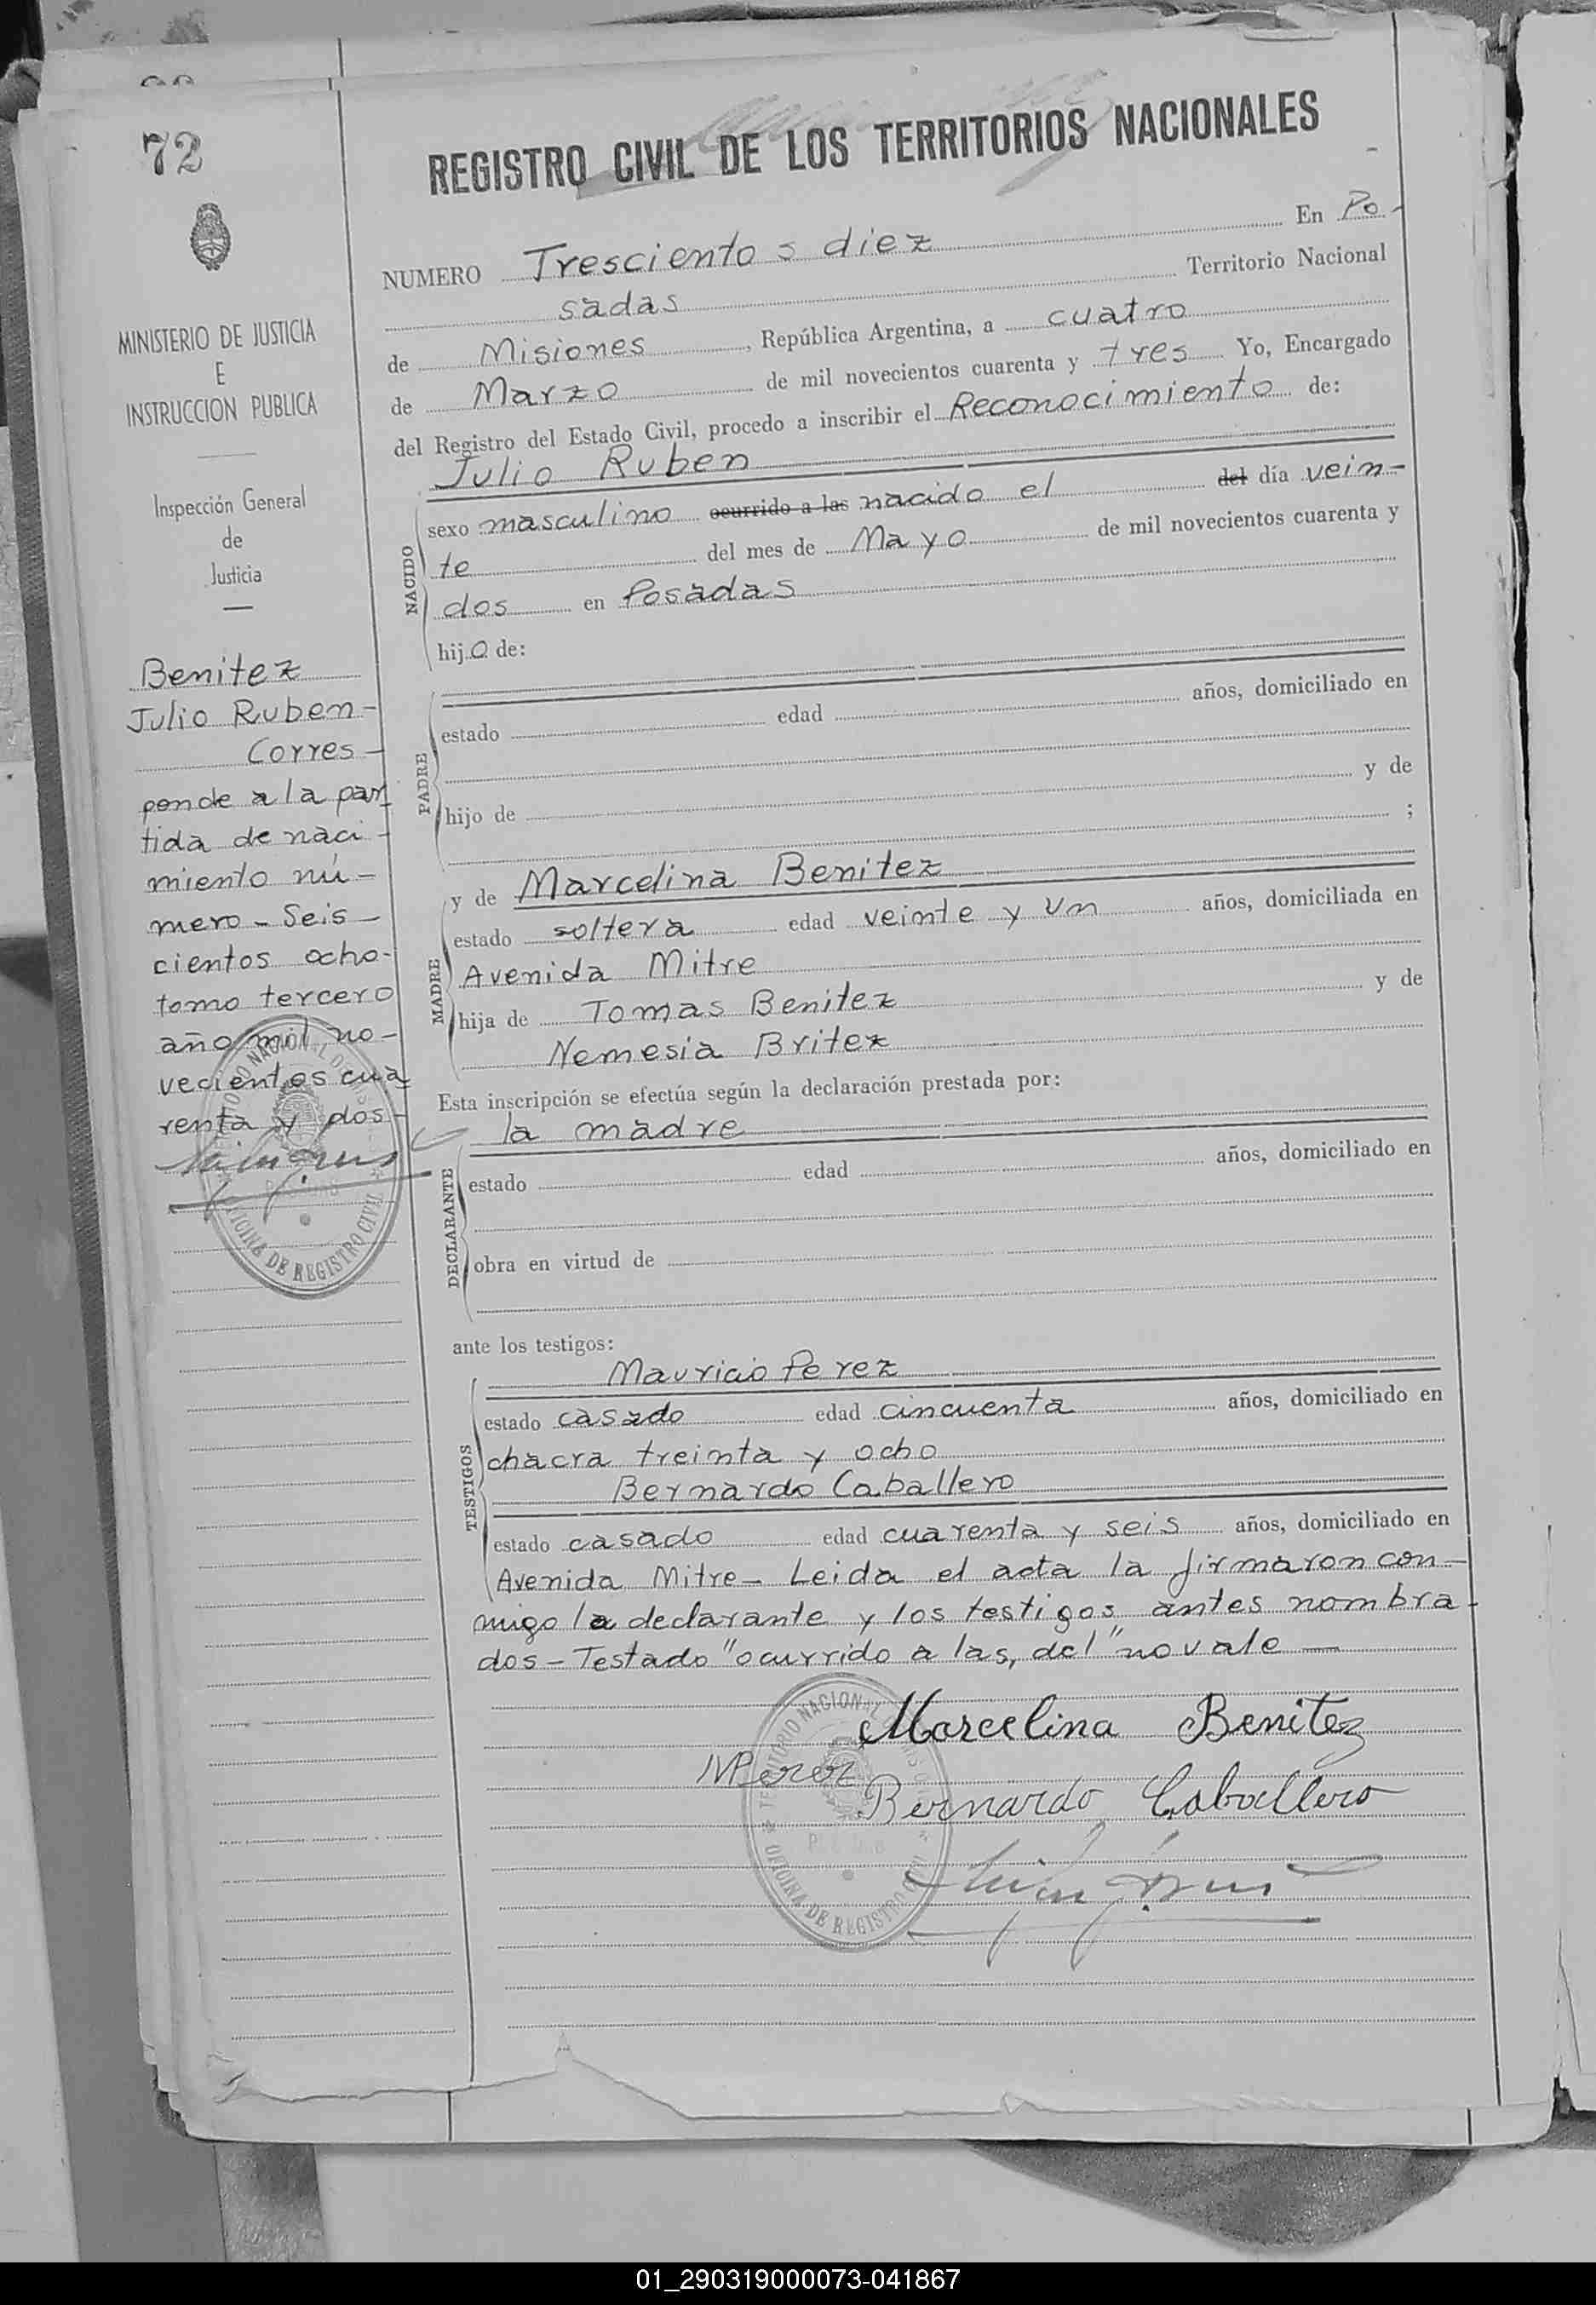 72
MINISTERIO DE JUSTICIA
E
INSTRUCCION PUBLICA
Inspección General
de
Justicia
Benitez
Julio Ruben-
Corres-
ponde a la par
tida de naci-
miento nú-
mero - Seis-
cientos ocho-
tomo tercero
año mil no-
vecientos cua
renta y dos-
OFICINA DE REGISTRO CIVIL
REGISTRO CIVIL DE LOS TERRITORIOS NACIONALES
NUMERO Trescientos diez En Po-
sadas Territorio Nacional
de Misiones, República Argentina, a cuatro
de Marzo de mil novecientos cuarenta y tres Yo, Encargado
del Registro del Estado Civil, procedo a inscribir el Reconocimiento de:
Julio Ruben
NACIDO
sexo masculino ocurrido a las nacido el del día vein-
te del mes de Mayo de mil novecientos cuarenta y
dos en Posadas
hijo de:
PADRE
estado edad años, domiciliado en
hijo de y de
;
MADRE
y de Marcelina Benitez
estado soltera edad veinte y un años, domiciliada en
Avenida Mitre
hija de Tomas Benitez y de
Nemesia Britez
Esta inscripción se efectúa según la declaración prestada por:
la madre
DECLARANTE
estado edad años, domiciliado en
obra en virtud de
ante los testigos:
Mauricio Perez
TESTIGOS
estado casado edad cincuenta años, domiciliado en
chacra treinta y ocho
Bernardo Caballero
estado casado edad cuarenta y seis años, domiciliado en
Avenida Mitre- Leida el acta la firmaron con-
migo la declarante y los testigos antes nombra-
dos - Testado "ocurrido a las, del" no vale —
Marcelina Benitez
MPerez
Bernardo Caballero
OFICINA DE REGISTRO CIVIL
01_290319000073-041867